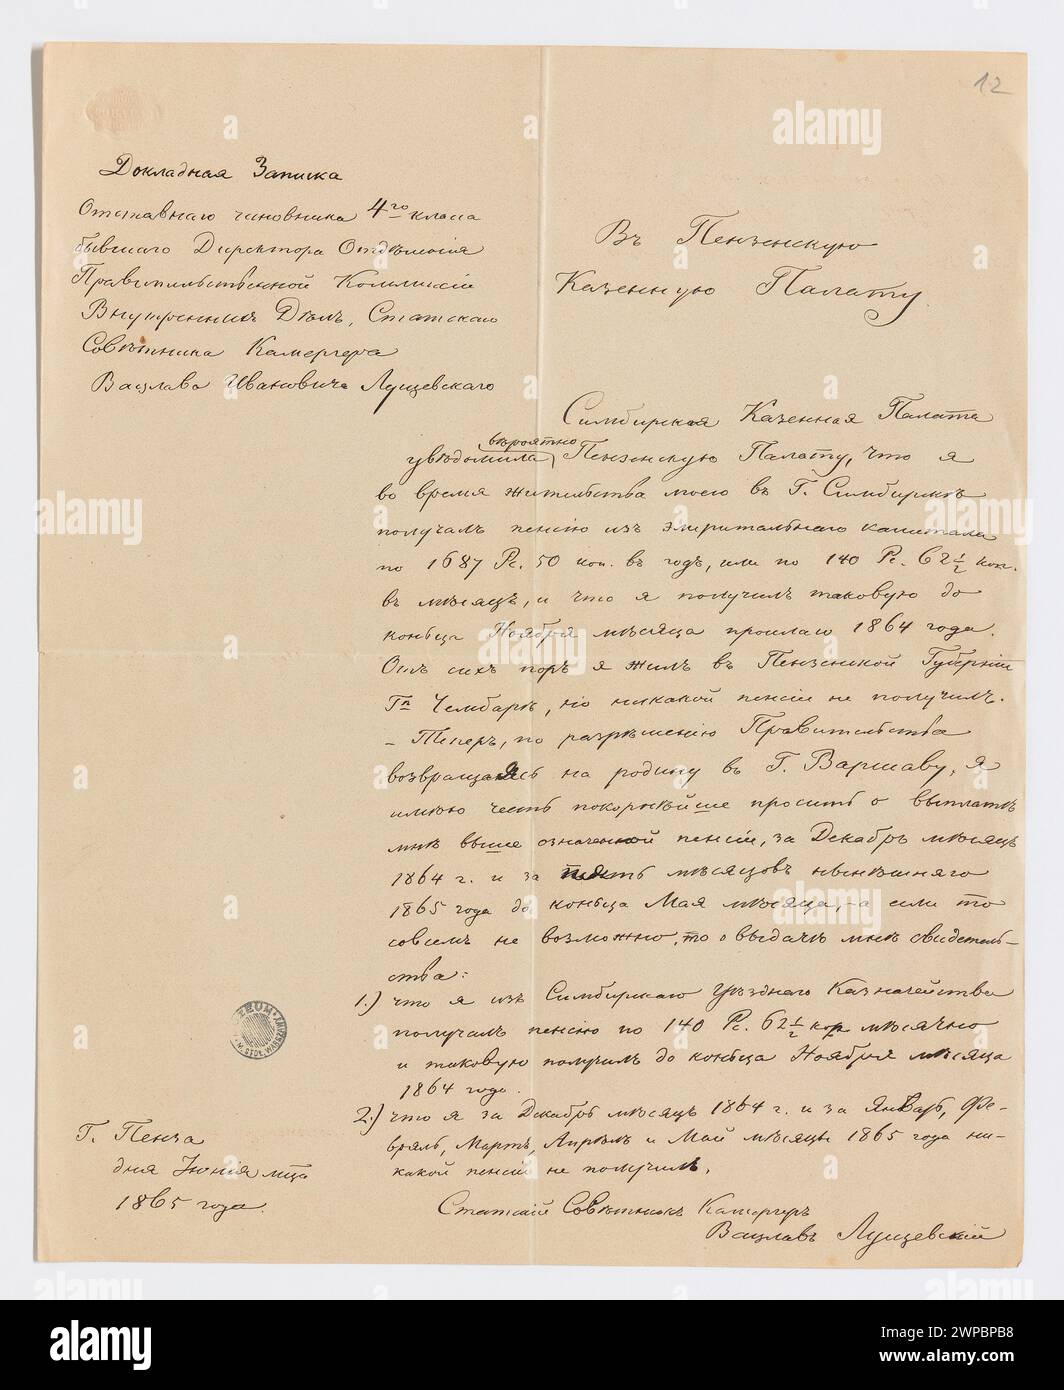 12
Докладная Записка
Отставнаго чиновника 4го класса
бывшаго Директора Отдѣленія
Правительственной Коммиссіи
Внутреннихъ Дѣлъ, Статскаго
Совѣтника Камергера
Вацлава Ивановича Лущевскаго
Въ Пензенскую
Казенную Палату
Симбирская Казенная Палата
вѣроятно
увѣдомила Пензенскую Палату, что я
во время жительства моего въ Г. Симбирскѣ
получалъ пенсію изъ эмеритальнаго капитала
по 1687 Рс. 50 коп. въ годъ, или по 140 Рс. 62½ коп.
въ мѣсяцъ, и что я получилъ таковую до
конца Ноября мѣсяца прошлаго 1864 года.
Отъ сихъ поръ я жилъ въ Пензенской Губерніи
Гд Чембарѣ, но никакой пенсіи не получилъ.
– Теперь, по разрѣшенію Правительства
возвращаясь на родину въ Г. Варшаву, я
имѣю честь покорнѣйше просить о выплатѣ
мнѣ выше означенной пенсіи, за Декабрь мѣсяцъ
1864 г. и за пять мѣсяцовъ нынѣшняго
1865 года до конца Мая мѣсяца, – а если то
совсемъ не возможно, то о выдачѣ мнѣ свидетель–
ства:
1.) что я изъ Симбирскаго Уѣзднаго Казначейства
получалъ пенсію по 140 Рс. 62½ коп мѣсячно
и таковую получилъ до конца Ноября мѣсяца
1864 года.
2.) что я за Декабрь мѣсяцъ 1864 г. и за Январь, Фе–
враль, Мартъ, Апрѣль и Май мѣсяцы 1865 года ни–
какой пенсіи не получилъ.
Статскій Совѣтникъ Камергеръ
Вацлавъ Лущевскій
Г. Пенза
дня Іюнія мца
1865 года.
alamy
Image ID: 2WPBPB8
www.alamy.com